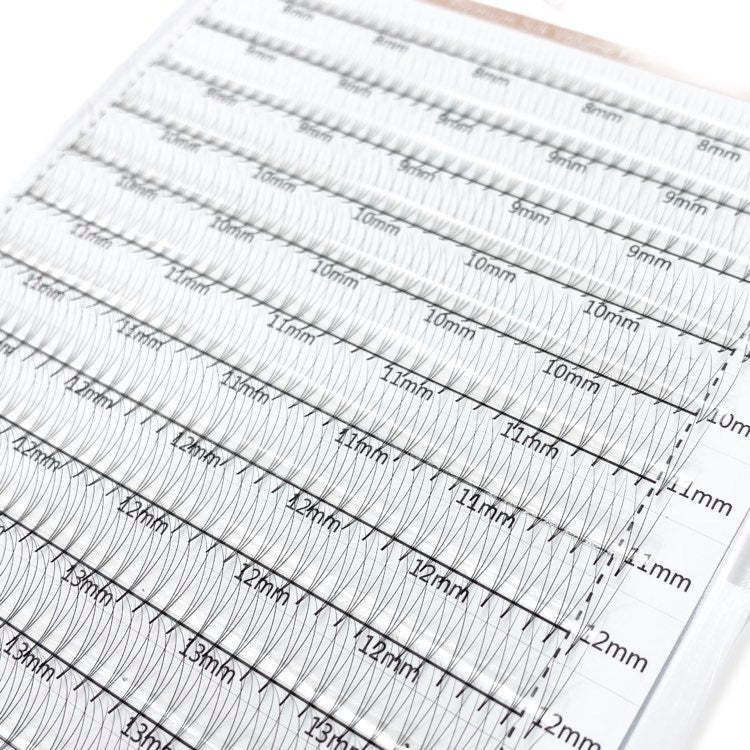 8mm 8mm 8mm 8mm 8mm
9mm 9mm 9mm 9mm 9mm
9mm 9mm 9mm 9mm 9mm
10mm 10mm 10mm 10mm 10mm
10mm 10mm 10mm 10mm 10mm 10m
11mm 11mm 11mm 11mm 11mm 11mm
11mm 11mm 11mm 11mm 11mm 11mm
12mm 12mm 12mm 12mm 12mm
12mm 12mm 12mm 12mm 12mm
13mm 13mm 13mm
13mm 13mm